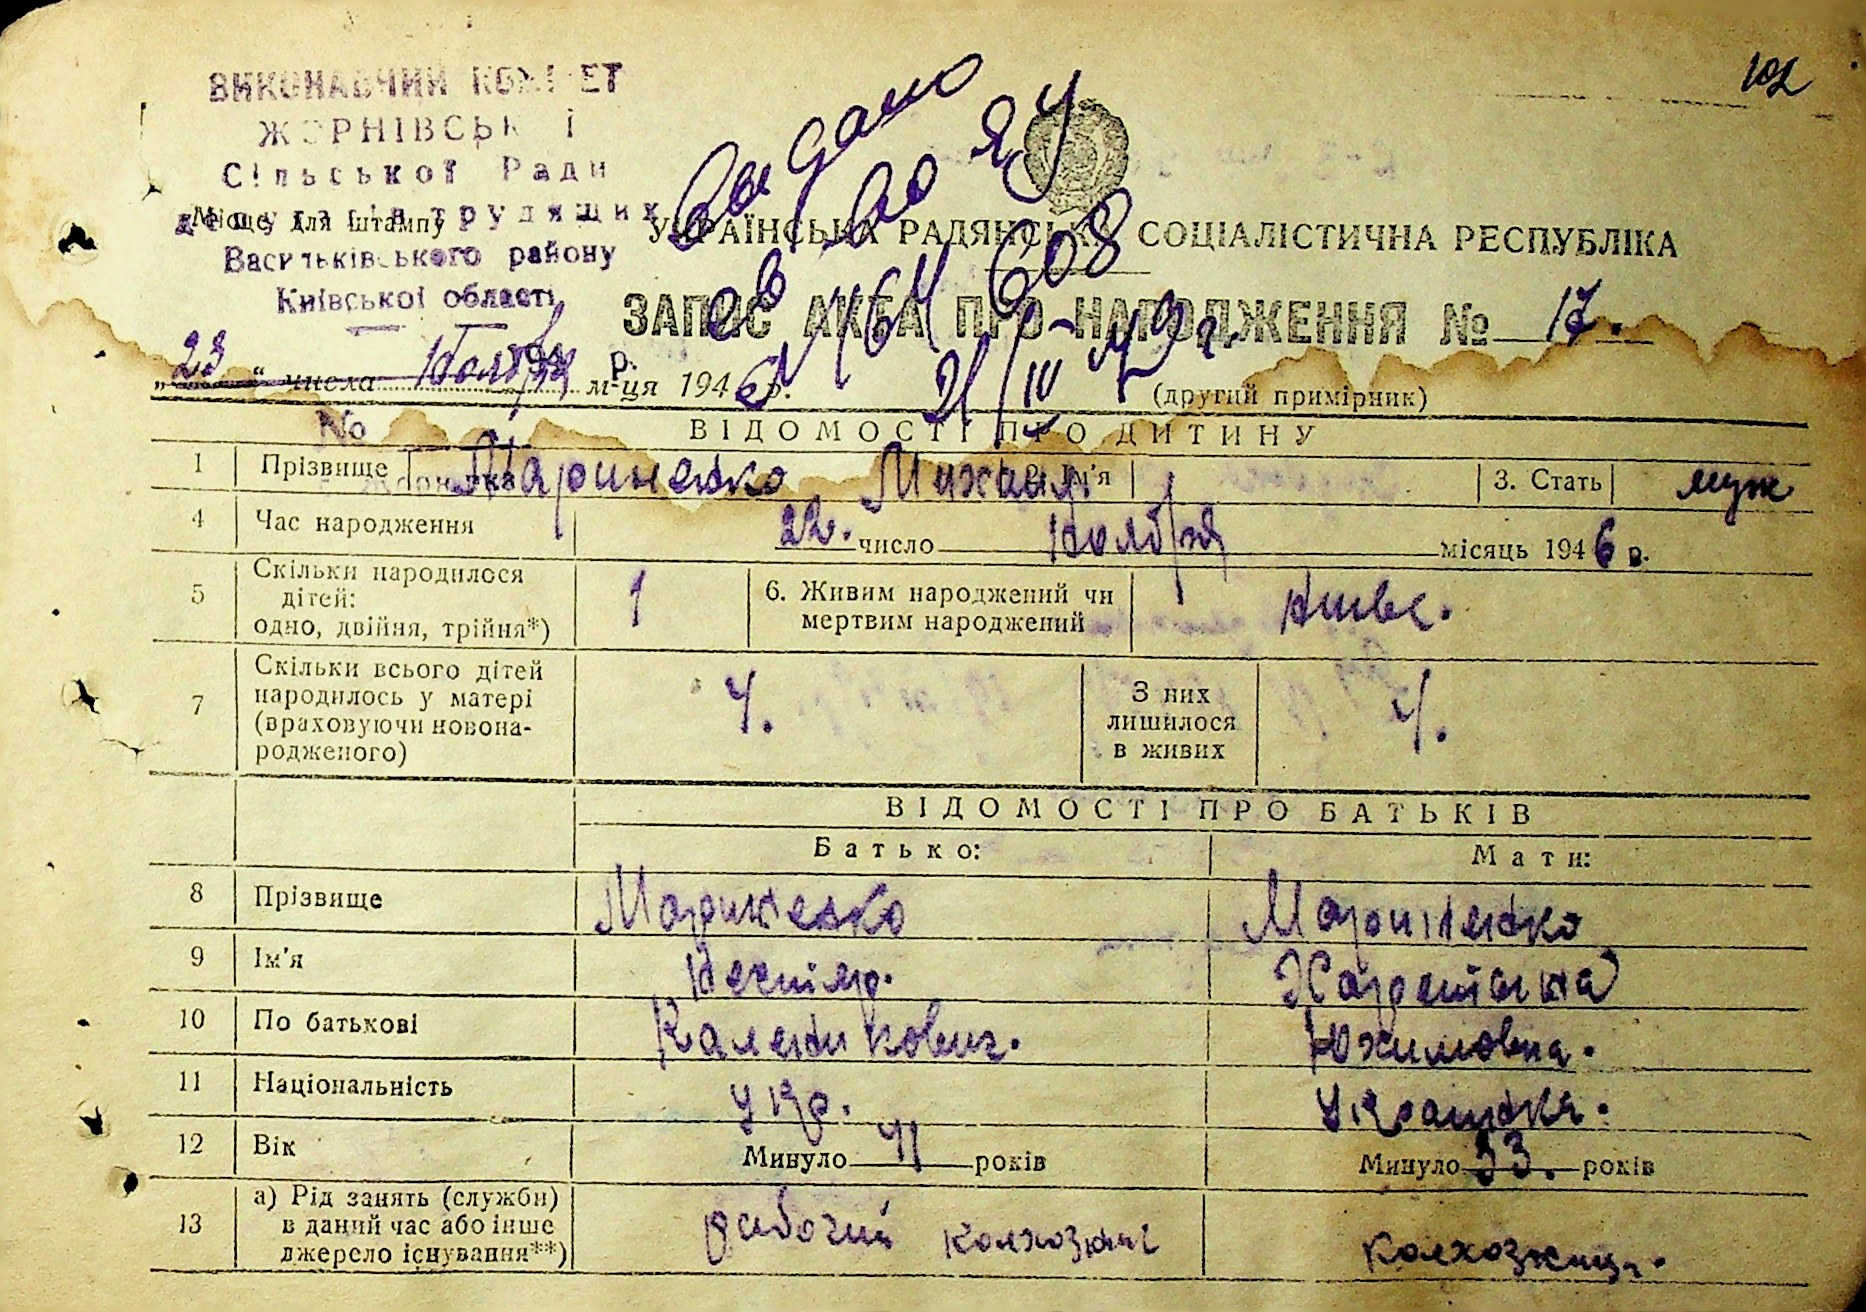 102
ВИКОНАВЧИЙ КОМІТЕТ
ЖОРНІВСЬКОЇ
Сільської Ради
депутатів трудящих
Місце для штампу
Васильківського району
Київської області
194 р.
№
Выдано
св во ЯУ
№ 164608
21/IV-49 г.
УКРАЇНСЬКА РАДЯНСЬКА СОЦІАЛІСТИЧНА РЕСПУБЛІКА
ЗАПИС АКТА ПРО НАРОДЖЕННЯ № 17.
„23“ числа Ноября м-ця 1946 р.
(другий примірник)
ВІДОМОСТІ ПРО ДИТИНУ
1 Прізвище Мариненко 2. Ім'я Михаил 3. Стать муж
4 Час народження 22. число Ноября місяць 1946 р.
5 Скільки народилося дітей: одно, двійня, трійня*) 1 6. Живим народжений чи мертвим народжений живс.
7 Скільки всього дітей народилось у матері (враховуючи новонародженого) 4. З них лишилося в живих 4.
ВІДОМОСТІ ПРО БАТЬКІВ
Батько: Мати:
8 Прізвище Мариненко Мариненко
9 Ім'я Нечипор. Харитина
10 По батькові Каленикович. Юхимовна.
11 Національність Укр. Украинка.
12 Вік Минуло 41 років Минуло 33. років
13 а) Рід занять (служби) в даний час або інше джерело існування**) рабочий колхозник колхозниц.